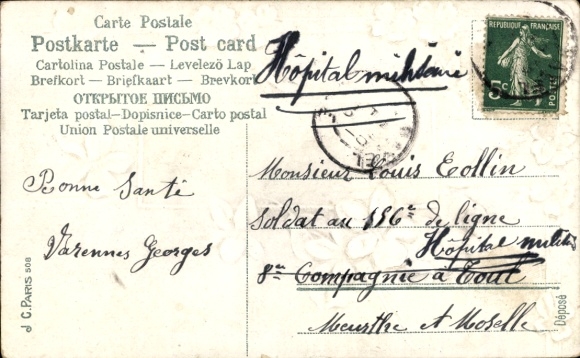 Carte Postale
Postkarte — Post card
Cartolina Postale — Levelező Lap
Brefkort — Briefkaart — Brevkort
ОТКРЫТОЕ ПИСЬМО
Tarjeta postal—Dopisnice—Carto postal
Union Postale universelle
Hôpital militaire
REPUBLIQUE FRANÇAISE
5c
POSTES
Bonne Santé
Varennes Georges
Monsieur Louis Collin
Soldat au 156e de ligne
Hôpital militaire
8me Compagnie à Toul
Meurthe et Moselle
J.C. PARIS 508
Déposé